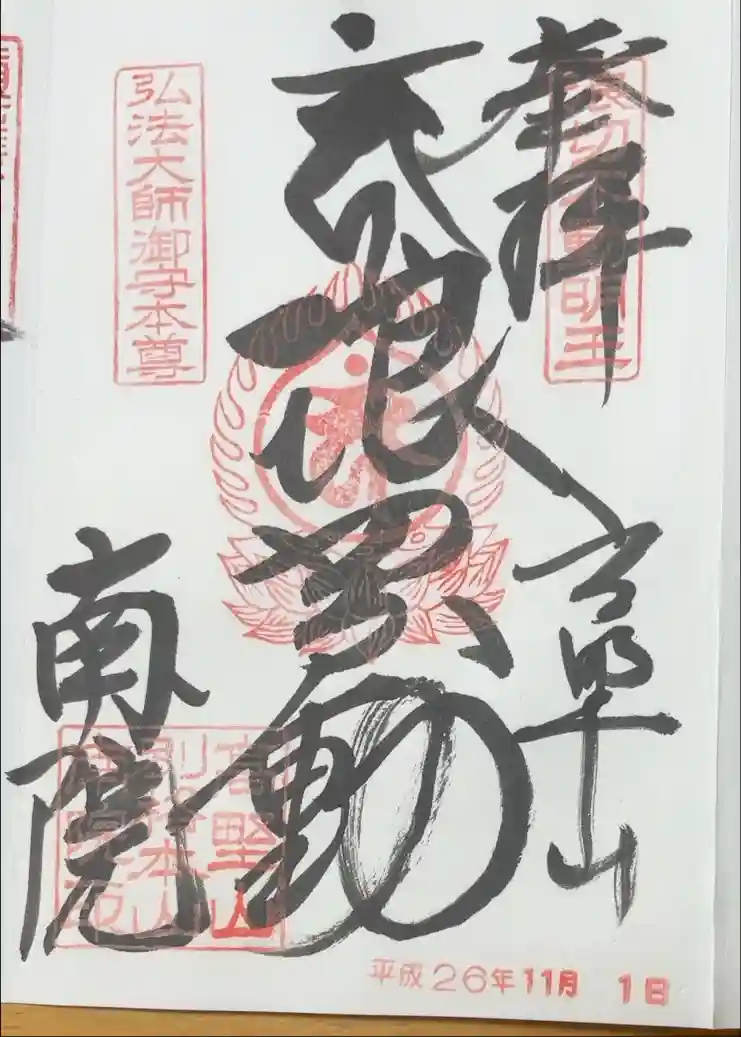 奉拝
高野山
浪切不動明王
動
弘法大師御守本尊
南院
高野山
別格本山
平成26年11月 1日